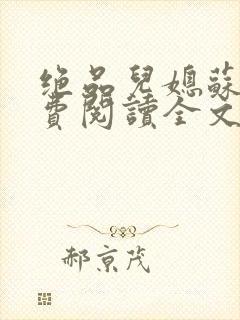 绝品兒媳蘇
費閱讀全文
郝京茂